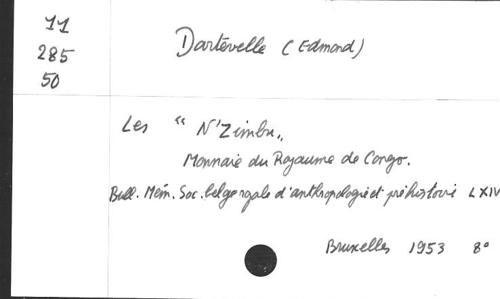 11
285
50
Dartevelle (Edmond)
Les "N'Zimbu"
Monnaie du Royaume de Congo.
Bull. Mém. Soc. belge royale d'anthropologie et préhistoire LXIV
Bruxelles 1953 8°